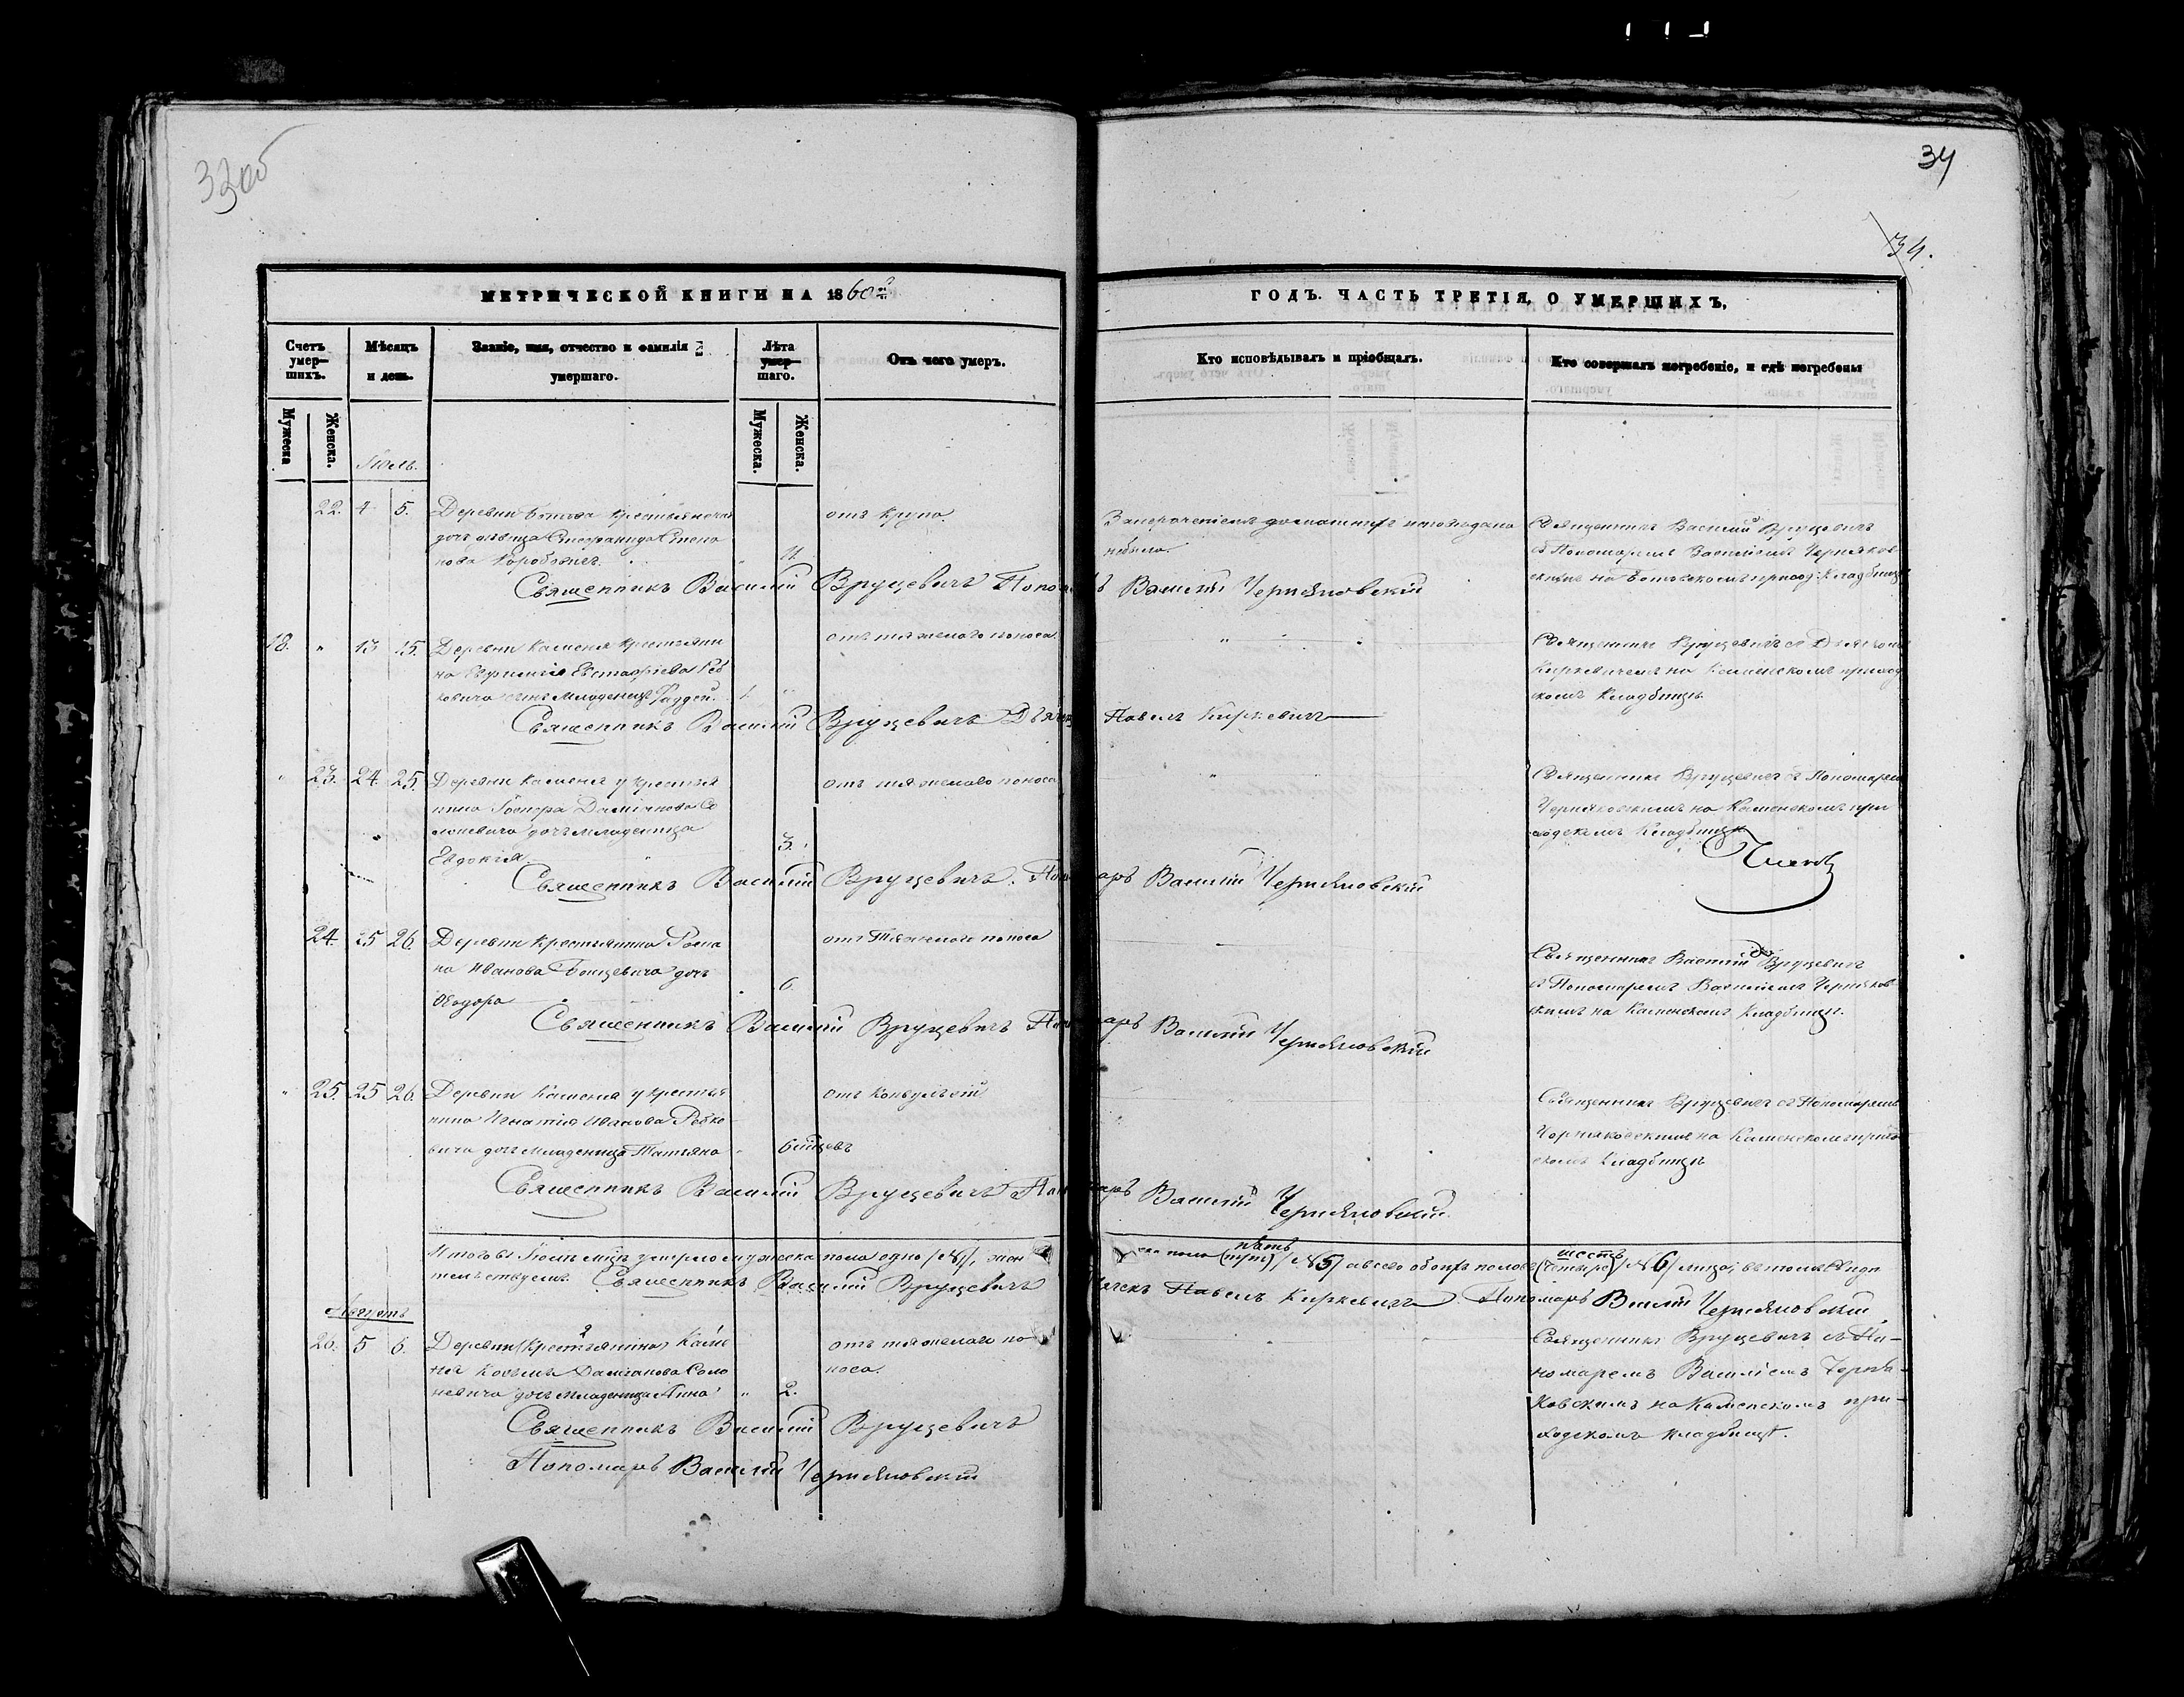 33об
34
34.
МЕТРИЧЕСКОЙ КНИГИ НА 1860й
ГОДЪ. ЧАСТЬ ТРЕТІЯ, О УМЕРШИХЪ,
Счетъ умершихъ.
Мѣсяцъ и день.
Званіе, имя, отчество и фамилія умершаго.
Лѣта умершаго.
Отъ чего умеръ.
Кто исповѣдывалъ и пріобщалъ.
Кто совершалъ погребеніе, и гдѣ погребены
Мужеска
Женска.
Мужеска.
Женска.
Іюль.
22. 4 5. Деревни крестьянина
дочь Стефанида Степа
нова
отъ крупа.
Священникъ Василій Вруцевичъ
съ Пономаремъ Василіемъ Черняков
скимъ на приход. Кладбищѣ
Священникъ Василій Вруцевичъ Пономарь Василій Черняковскій
18. " 13 15. Деревни Каменя крестьяни
на Евстафіева Реб
ковича сынъ младенецъ Фаддей.
отъ тяжелаго поноса.
Священникъ Вруцевичъ съ Дьячкомъ
Киркевичемъ на Каменскомъ приход
скомъ Кладбищѣ
Священникъ Василій Вруцевичъ Дьячекъ Павелъ Киркевичъ
" 23. 24 25. Деревни Каменя у крестья
нина Даміанова Со
лоневича дочь младеница
Евдокія
3.
отъ тяжелаго поноса
Священникъ Вруцевичъ съ Пономаремъ
Черняковскимъ на Каменскомъ при
ходскомъ Кладбищѣ
Священникъ Василій Вруцевичъ. Пономарь Василій Черняковскій
24. 25 26. Деревни крестьянина Рома
на Иванова дочь
Ѳеодора
6.
отъ тяжелаго поноса
Священникъ Василій Вруцевичъ
съ Пономаремъ Василіемъ Черняков
скимъ на Каменскомъ Кладбищѣ.
Священникъ Василій Вруцевичъ Пономарь Василій Черняковскій
" 25. 25 26. Деревни Каменя у крестья
нина Игнатія Иванова Ребко
вича дочь младеница Татьяна
6 мѣсцевъ
отъ конвульсій
Священникъ Вруцевичъ съ Пономаремъ
Черняковскимъ на Каменскомъ приход
скомъ Кладбищѣ
Священникъ Василій Вруцевичъ Пономарь Василій Черняковскій.
Итого въ Іюлѣ мцѣ умерло мужеска пола одно /№1/, жен
ска пола пять (три) /№5/ а всего обоихъ половъ шесть (четыре) /№6/ лицъ; въ томъ свидѣ
тельствуемъ. Священникъ Василій Вруцевичъ Дьячекъ Павелъ Киркевичъ Пономарь Василій Черняковскій
Августъ
26. 5 6. Деревни крестьянина Каме
ня Козьмы Даміанова Соло
невича дочь младеница Анна
" 2.
отъ тяжелаго по
носа.
Священникъ Вруцевичъ съ По-
номаремъ Василіемъ Черня-
ковскимъ на Каменскомъ при-
ходскомъ кладбищѣ.
Священникъ Василій Вруцевичъ
Пономарь Василій Черняковскій